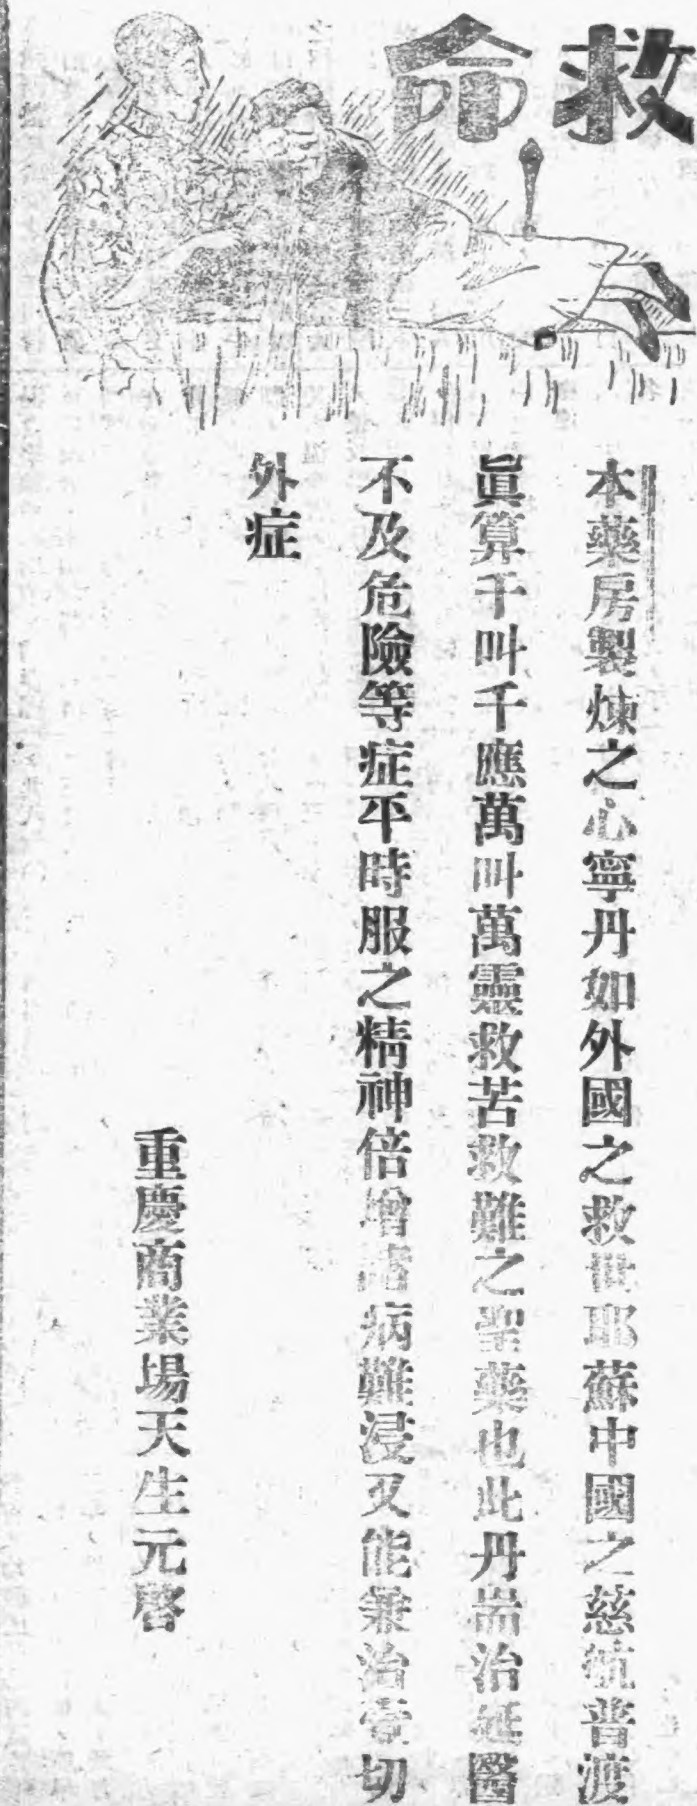 救命
本藥房製煉之心寧丹如外國之救世耶蘇中國之慈航普渡
眞算千叫千應萬叫萬靈救苦救難之聖藥也此丹耑治延醫
不及危險等症平時服之精神倍增諸病難浸又能兼治壹切
外症
重慶商業場天生元啓